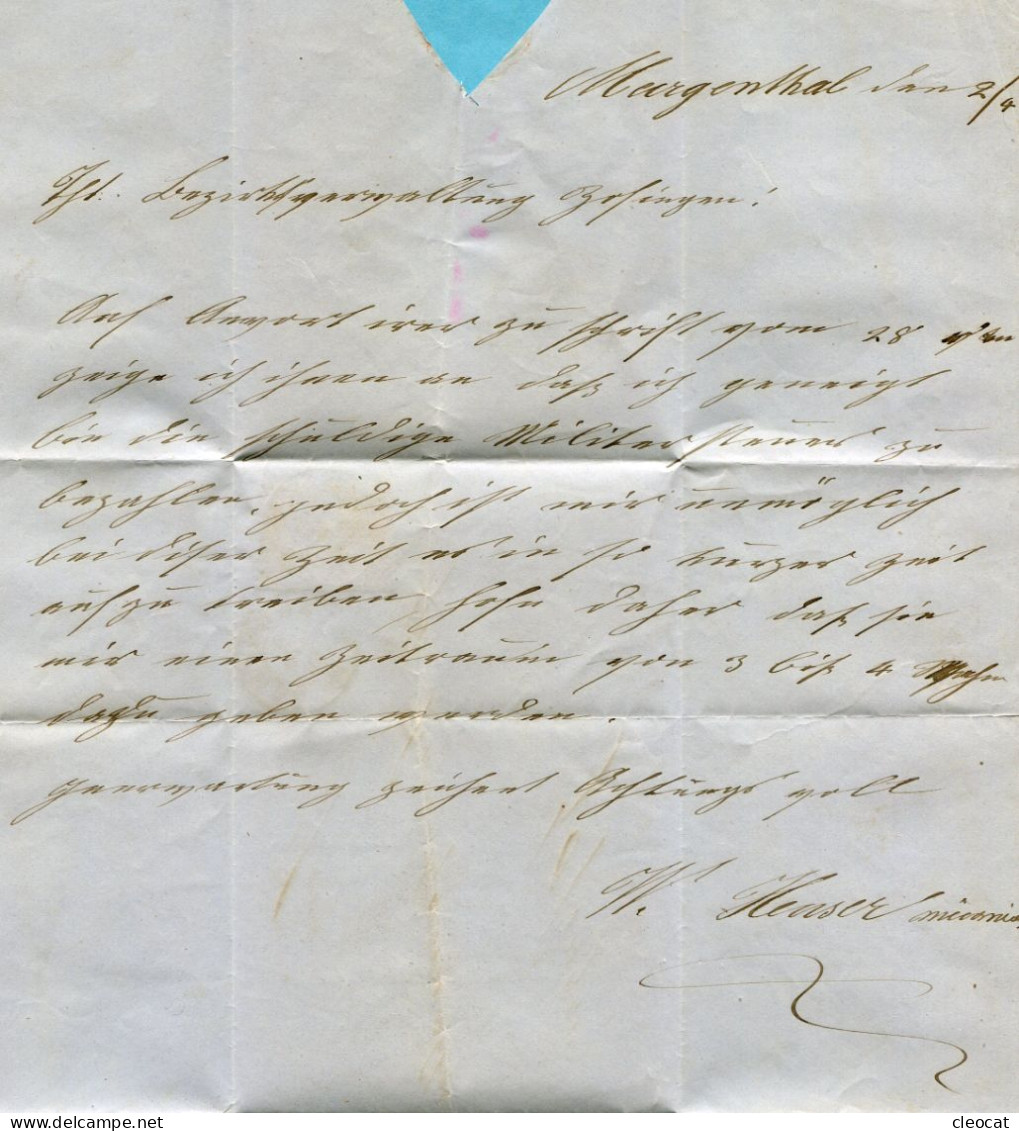 Murgenthal den 2/4
Tit. Bezirksverwaltung Zofingen!
Auf Anwort irer zu schrift vom 28
zeige ich ihnen an daß ich geneigt
bin die schuldige Militersteuer zu
bezahlen, jedoch ist mir unmöglich
bei diser Zeit es in so kurzer Zeit
aufzu treiben hofe daher daß sie
mir einen Zeitraum von 3 biß 4 Wochen
dazu geben werden.
zeichent Achtungs voll
W. Heuser
cleocat